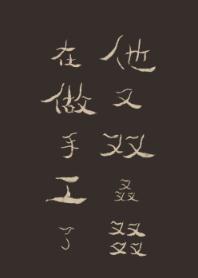 他又双叒叕
在做手工了